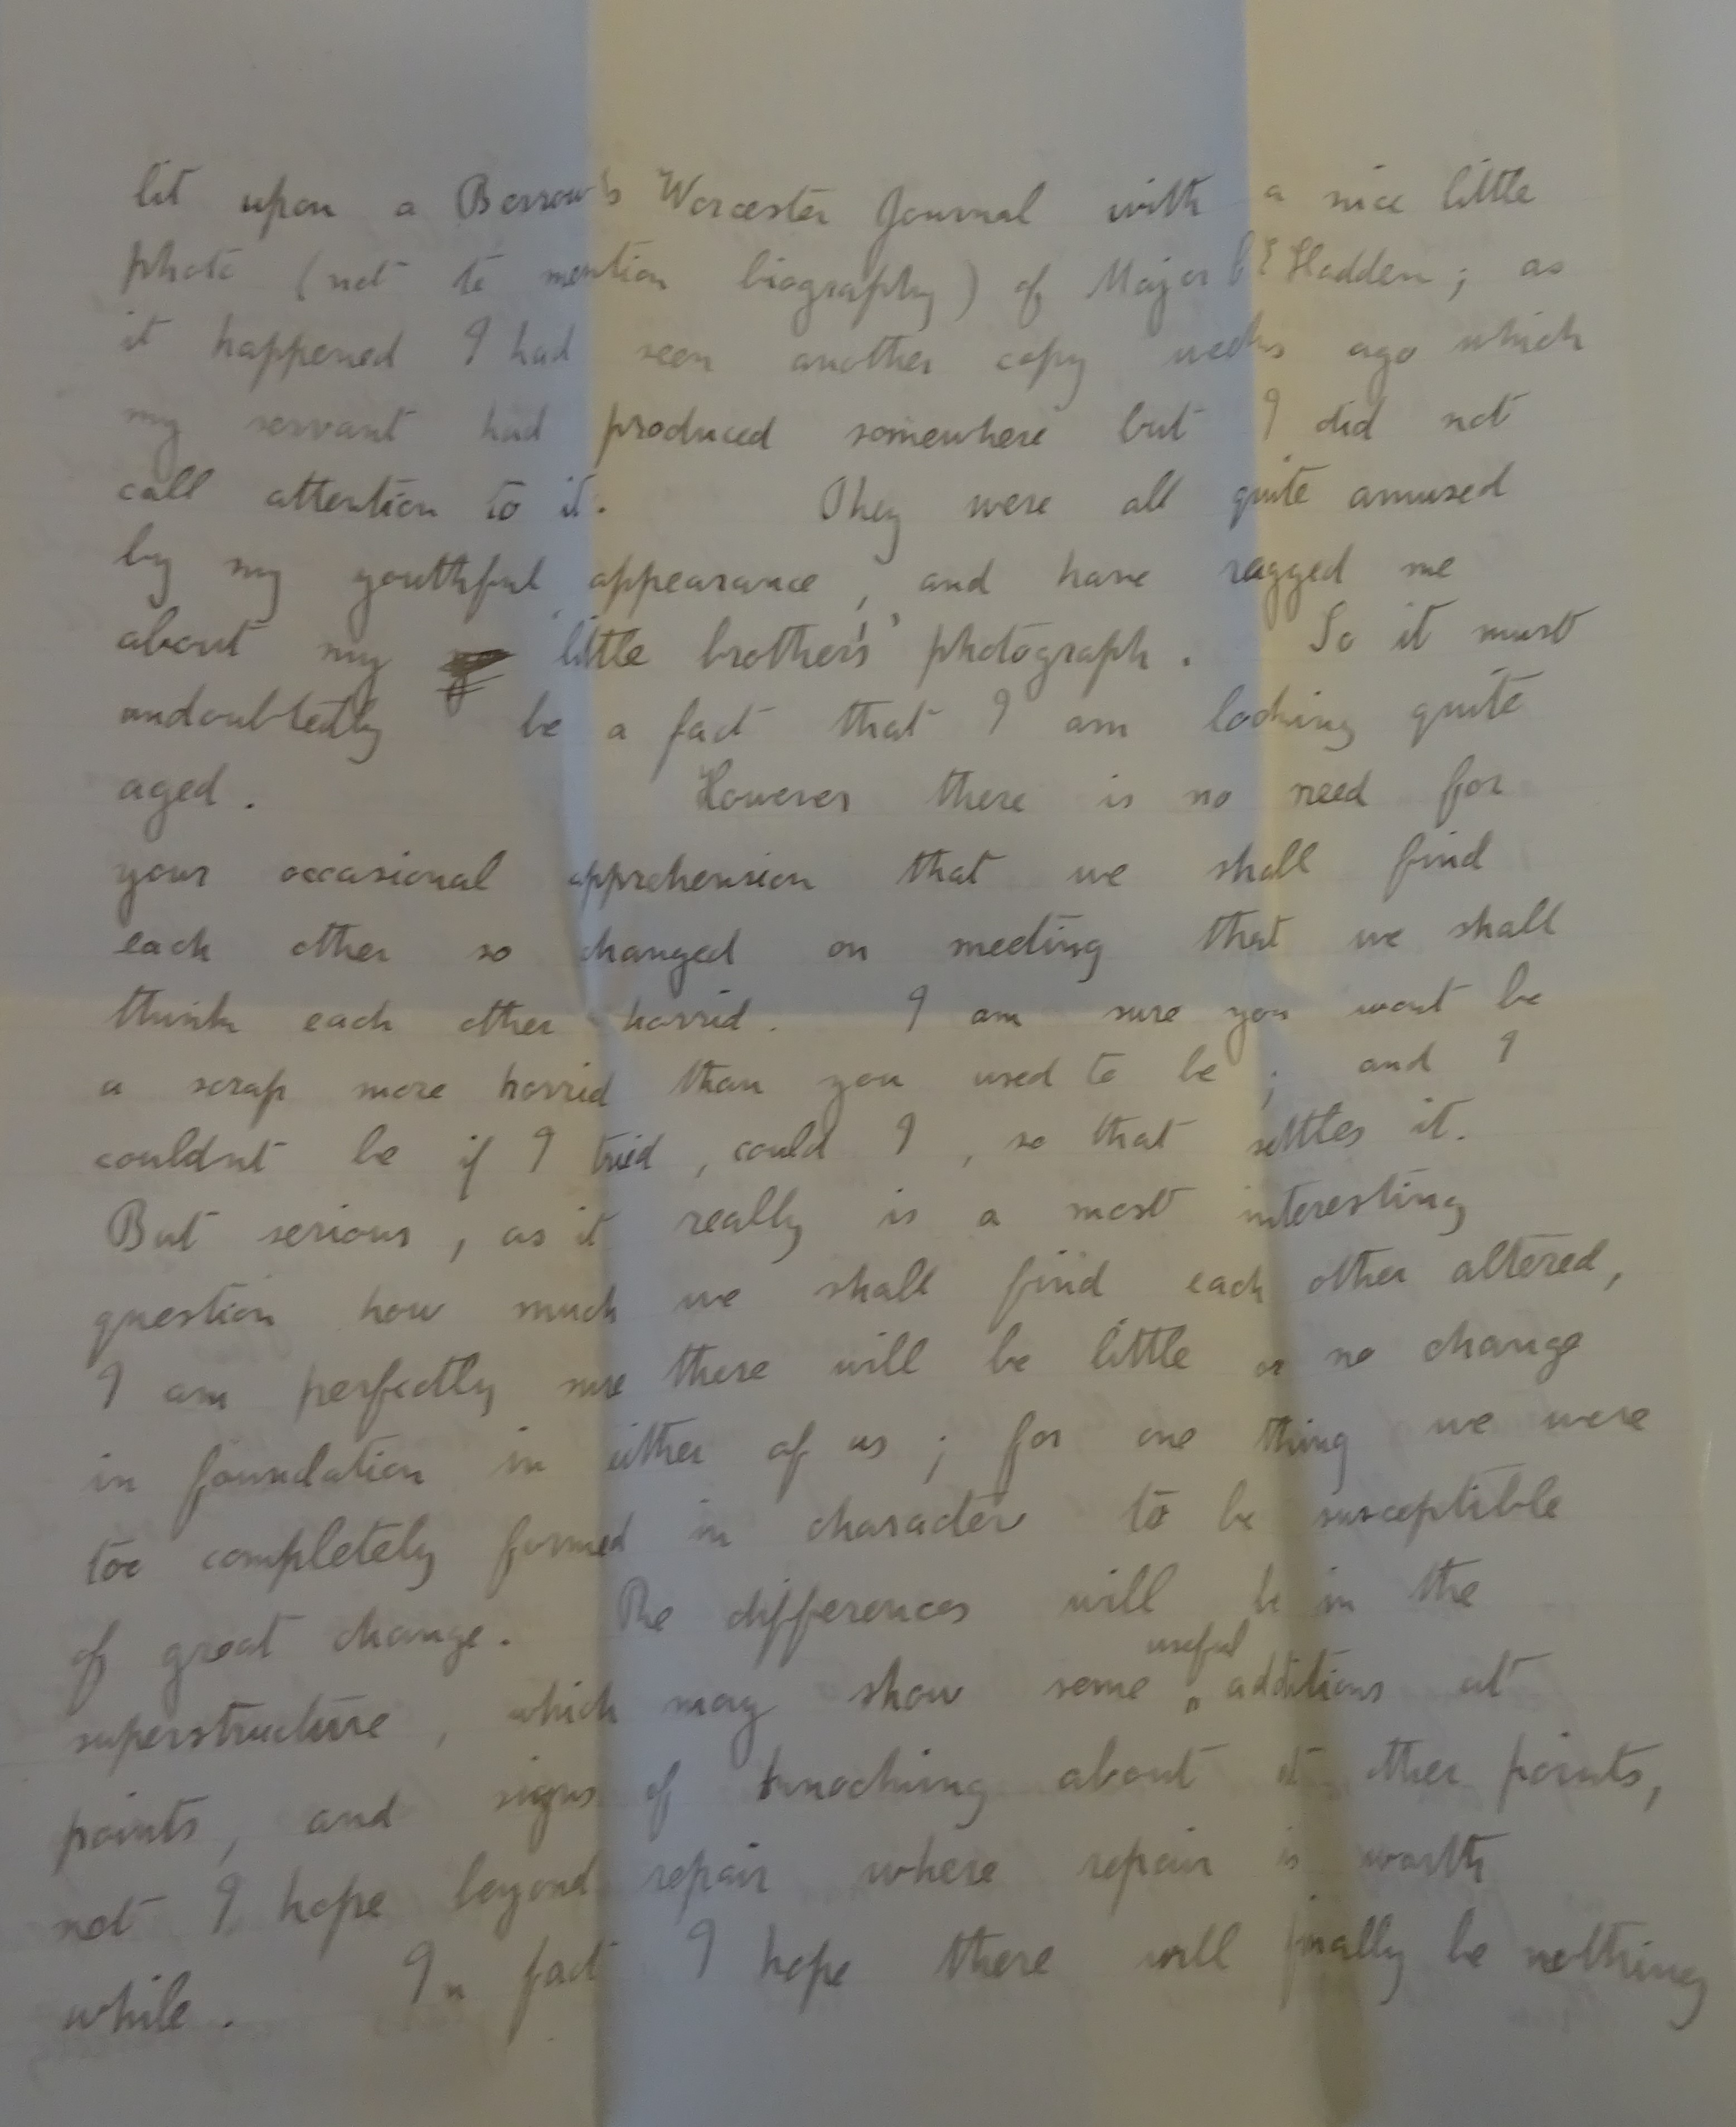 lit upon a Berrow's Worcester Journal with a nice little
photo (not to mention biography) of Major Hadden; as
it happened I had seen another copy weeks ago which
my servant had produced somewhere but I did not
call attention to it. They were all quite amused
by my youthful appearance, and have ragged me
about my 'little brother's' photograph. So it must
undoubtedly be a fact that I am looking quite
aged. However there is no need for
your occasional apprehension that we shall find
each other so changed on meeting that we shall
think each other horrid. I am sure you wont be
a scrap more horrid than you used to be; and I
couldnt be if I tried, could I, so that settles it.
But serious, as it really is a most interesting
question how much we shall find each other altered,
I am perfectly sure there will be little or no change
in foundation in either of us; for one thing we were
too completely formed in character to be susceptible
of great change. The differences will be in the
superstructure, which may show some useful additions at
points, and signs of knocking about at other points,
not I hope beyond repair where repair is worth
while. In fact I hope there will finally be nothing